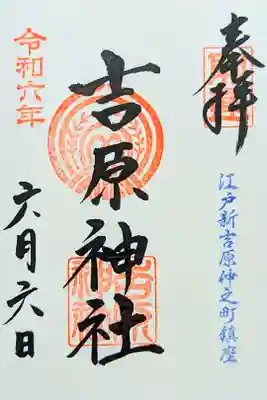 奉拝
江戸新吉原仲之町鎮座
吉原神社
令和六年
六月六日